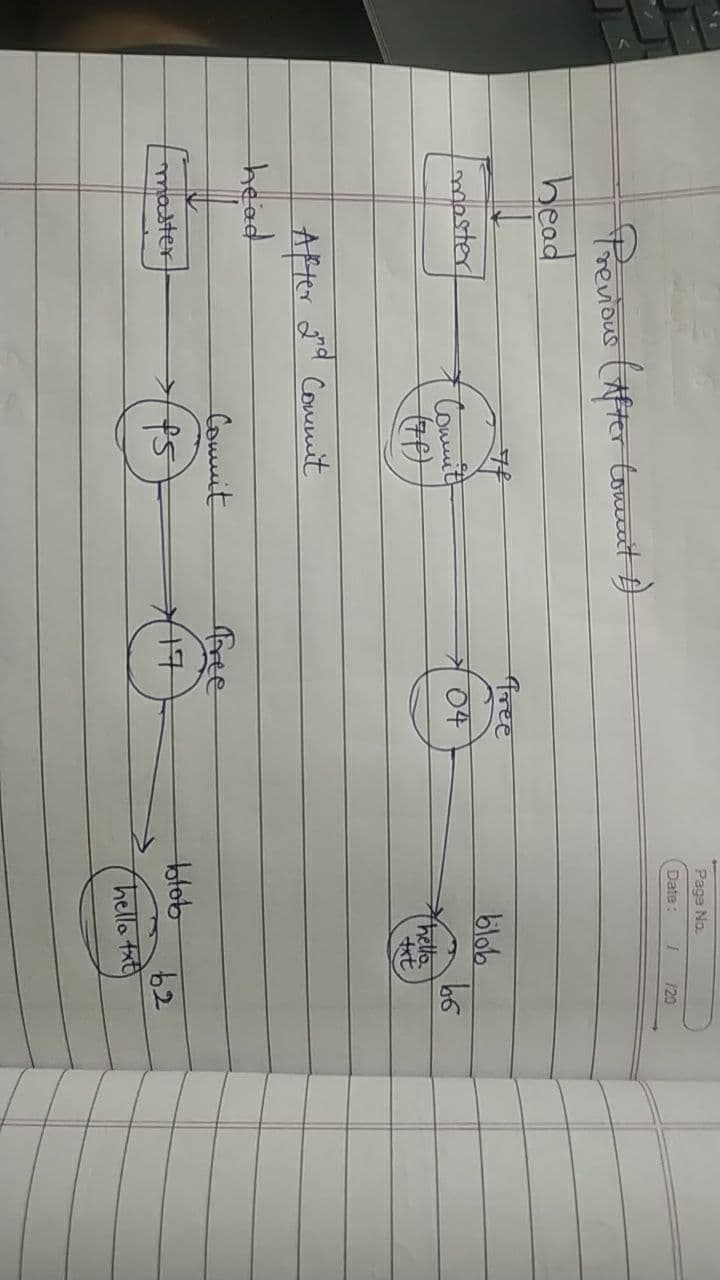 Page No.
Date : / /20
Previous (After Commit 1)
head
master
7f
Commit
(7f)
Tree
04
blob
hello.
txt
b6
After 2nd Commit
head
master
Commit
f5
Tree
17
blob
hello.txt
b2